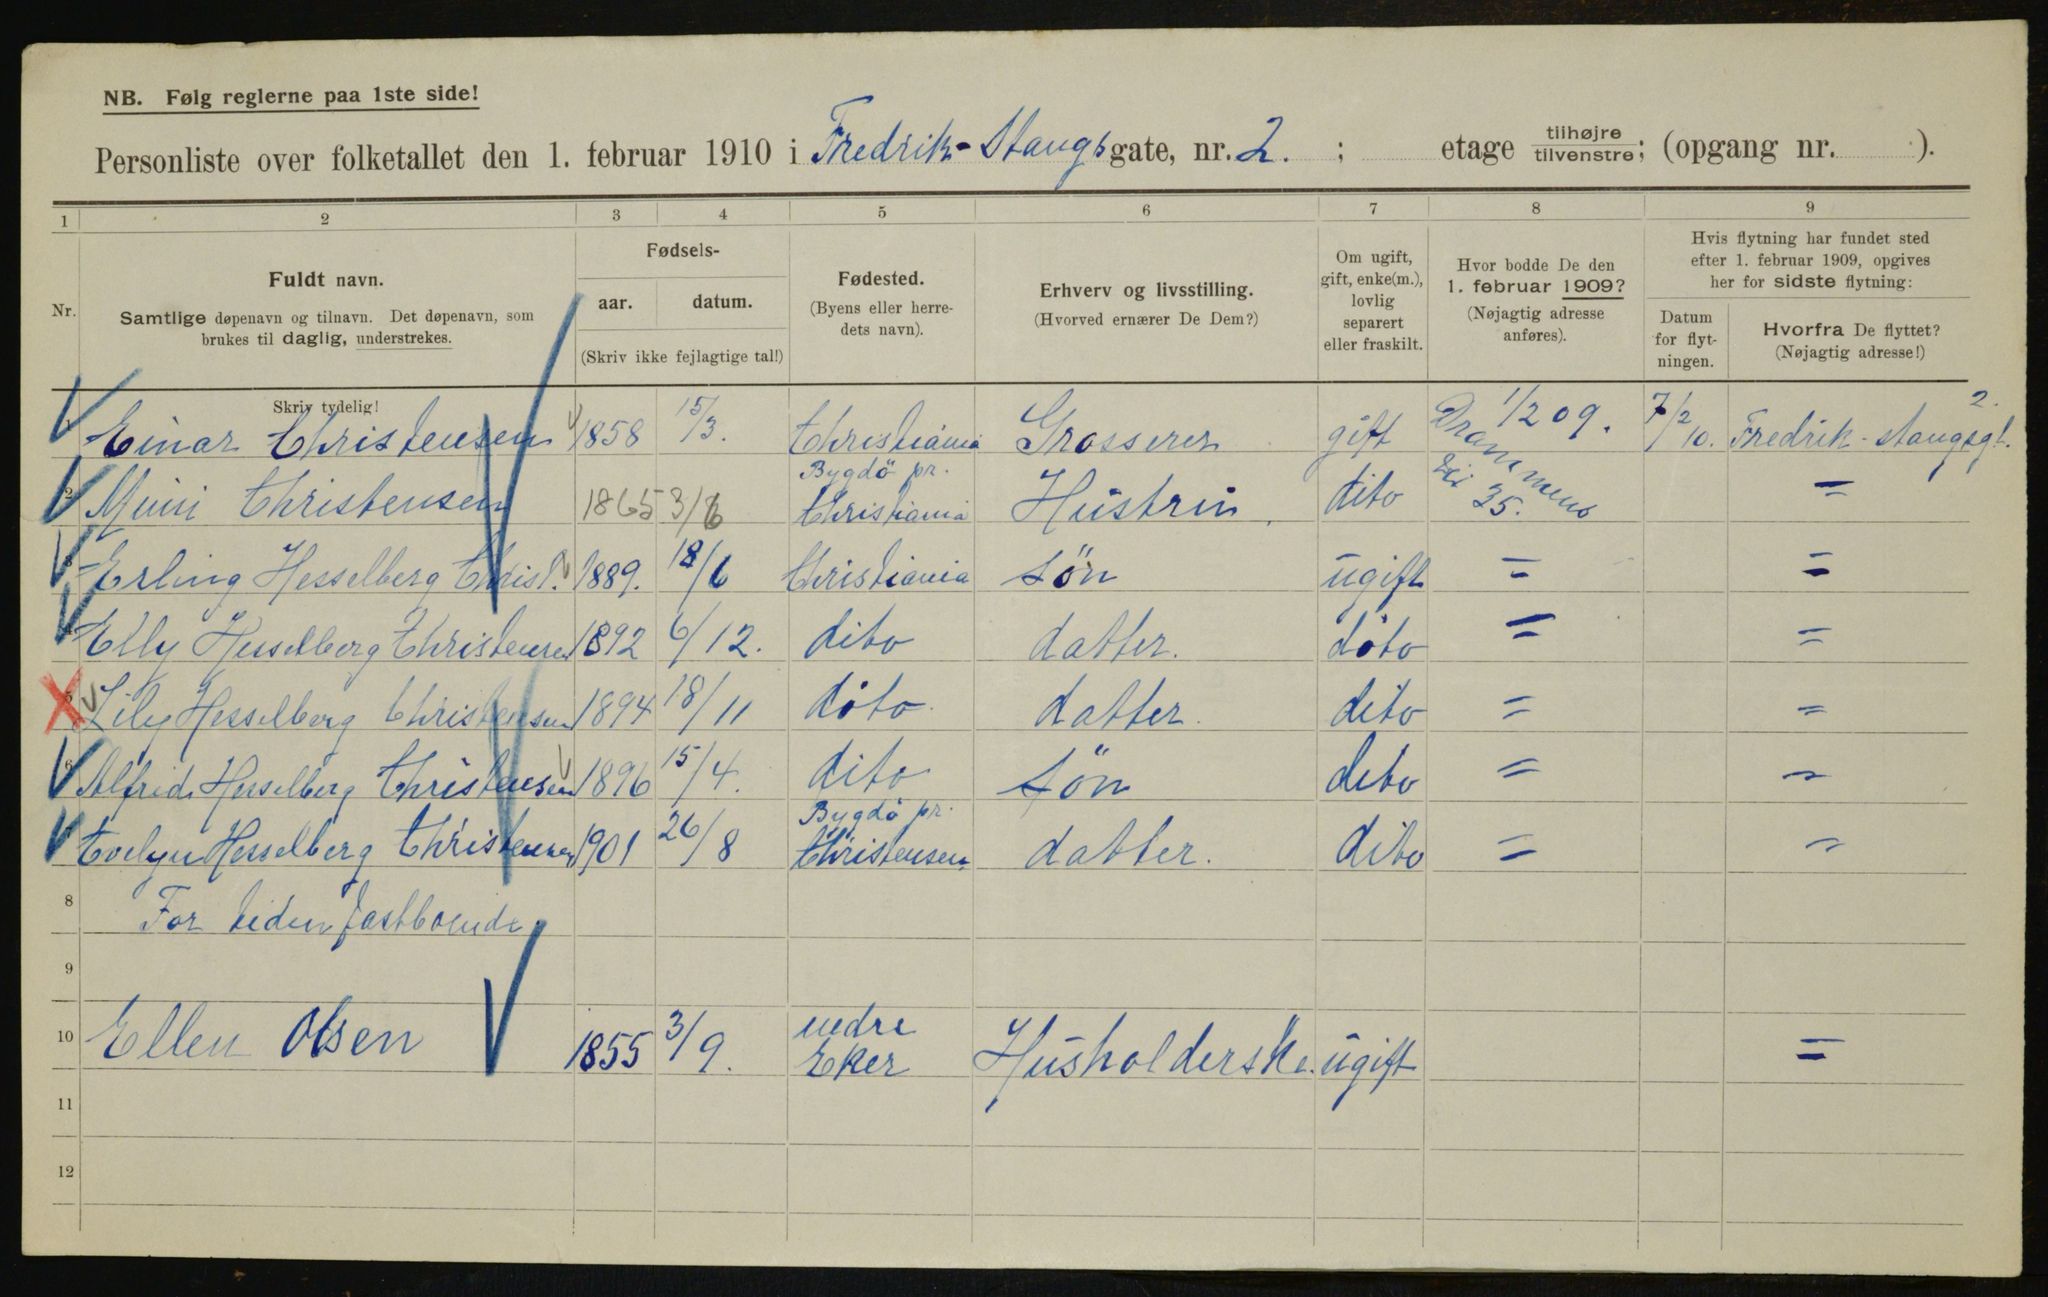 NB. Følg reglerne paa 1ste side!
Personliste over folketallet den 1. februar 1910 i Fredrik-Stangsgate, nr. 2. ; etage tilhøjre tilvenstre; (opgang nr. ).
1 2 3 4 5 6 7 8 9
Nr.
Fuldt navn.
Samtlige døpenavn og tilnavn. Det døpenavn, som
brukes til daglig, understrekes.
Skriv tydelig!
Fødsels-
aar. datum.
(Skriv ikke fejlagtige tal!)
Fødested.
(Byens eller herre-
dets navn).
Erhverv og livsstilling.
(Hvorved ernærer De Dem?)
Om ugift,
gift, enke(m.),
lovlig
separert
eller fraskilt.
Hvor bodde De den
1. februar 1909?
(Nøjagtig adresse
anføres).
Hvis flytning har fundet sted
efter 1. februar 1909, opgives
her for sidste flytning:
Datum
for flyt-
ningen.
Hvorfra De flyttet?
(Nøjagtig adresse!)
1 Einar Christensen 1858 15/3. Christiania Grosserer gift 1/2 09. Drammens 35. 7/2 10. Fredrik-stangsgt. 2.
2 Mimi Christensen 1865 3/6 Bygdö pr. Christiania Hustru dito =
3 Erling Hesselberg Christ. 1889. 18/6 Christiania Sön ugift = =
Elly Hesselberg Christensen 1892 6/12. dito datter. dito = =
5 Lily Hesselberg Christensen 1894 18/11 dito datter. dito = =
6 Alfred Hesselberg Christensen 1896 15/4. dito Sön dito = =
Evelyn Hesselberg Christensen 1901 26/8 Bygdö pr. Christensen datter. dito = =
8 For tiden fastboende
9
10 Ellen Olsen 1855 3/9. nedre Eker Husholderske. ugift =
11
12